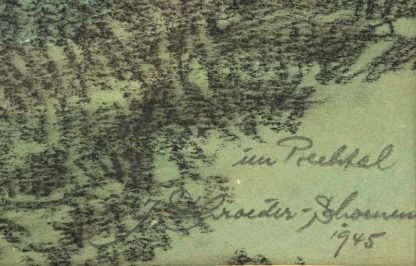 im Prechtal
J. Schroeder-Schoenen
1945